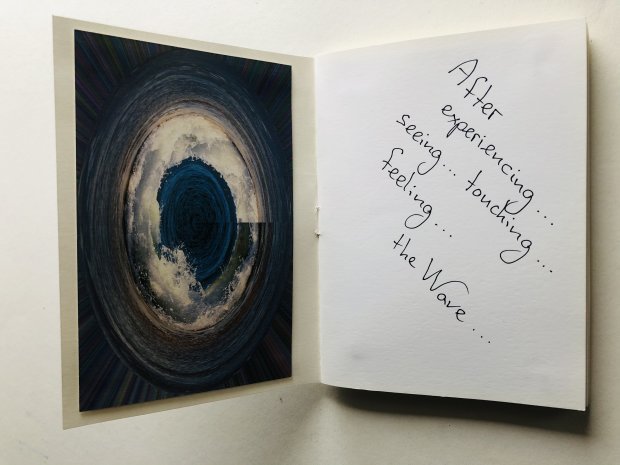 After
experiencing...
seeing... touching...
feeling...
the Wave...